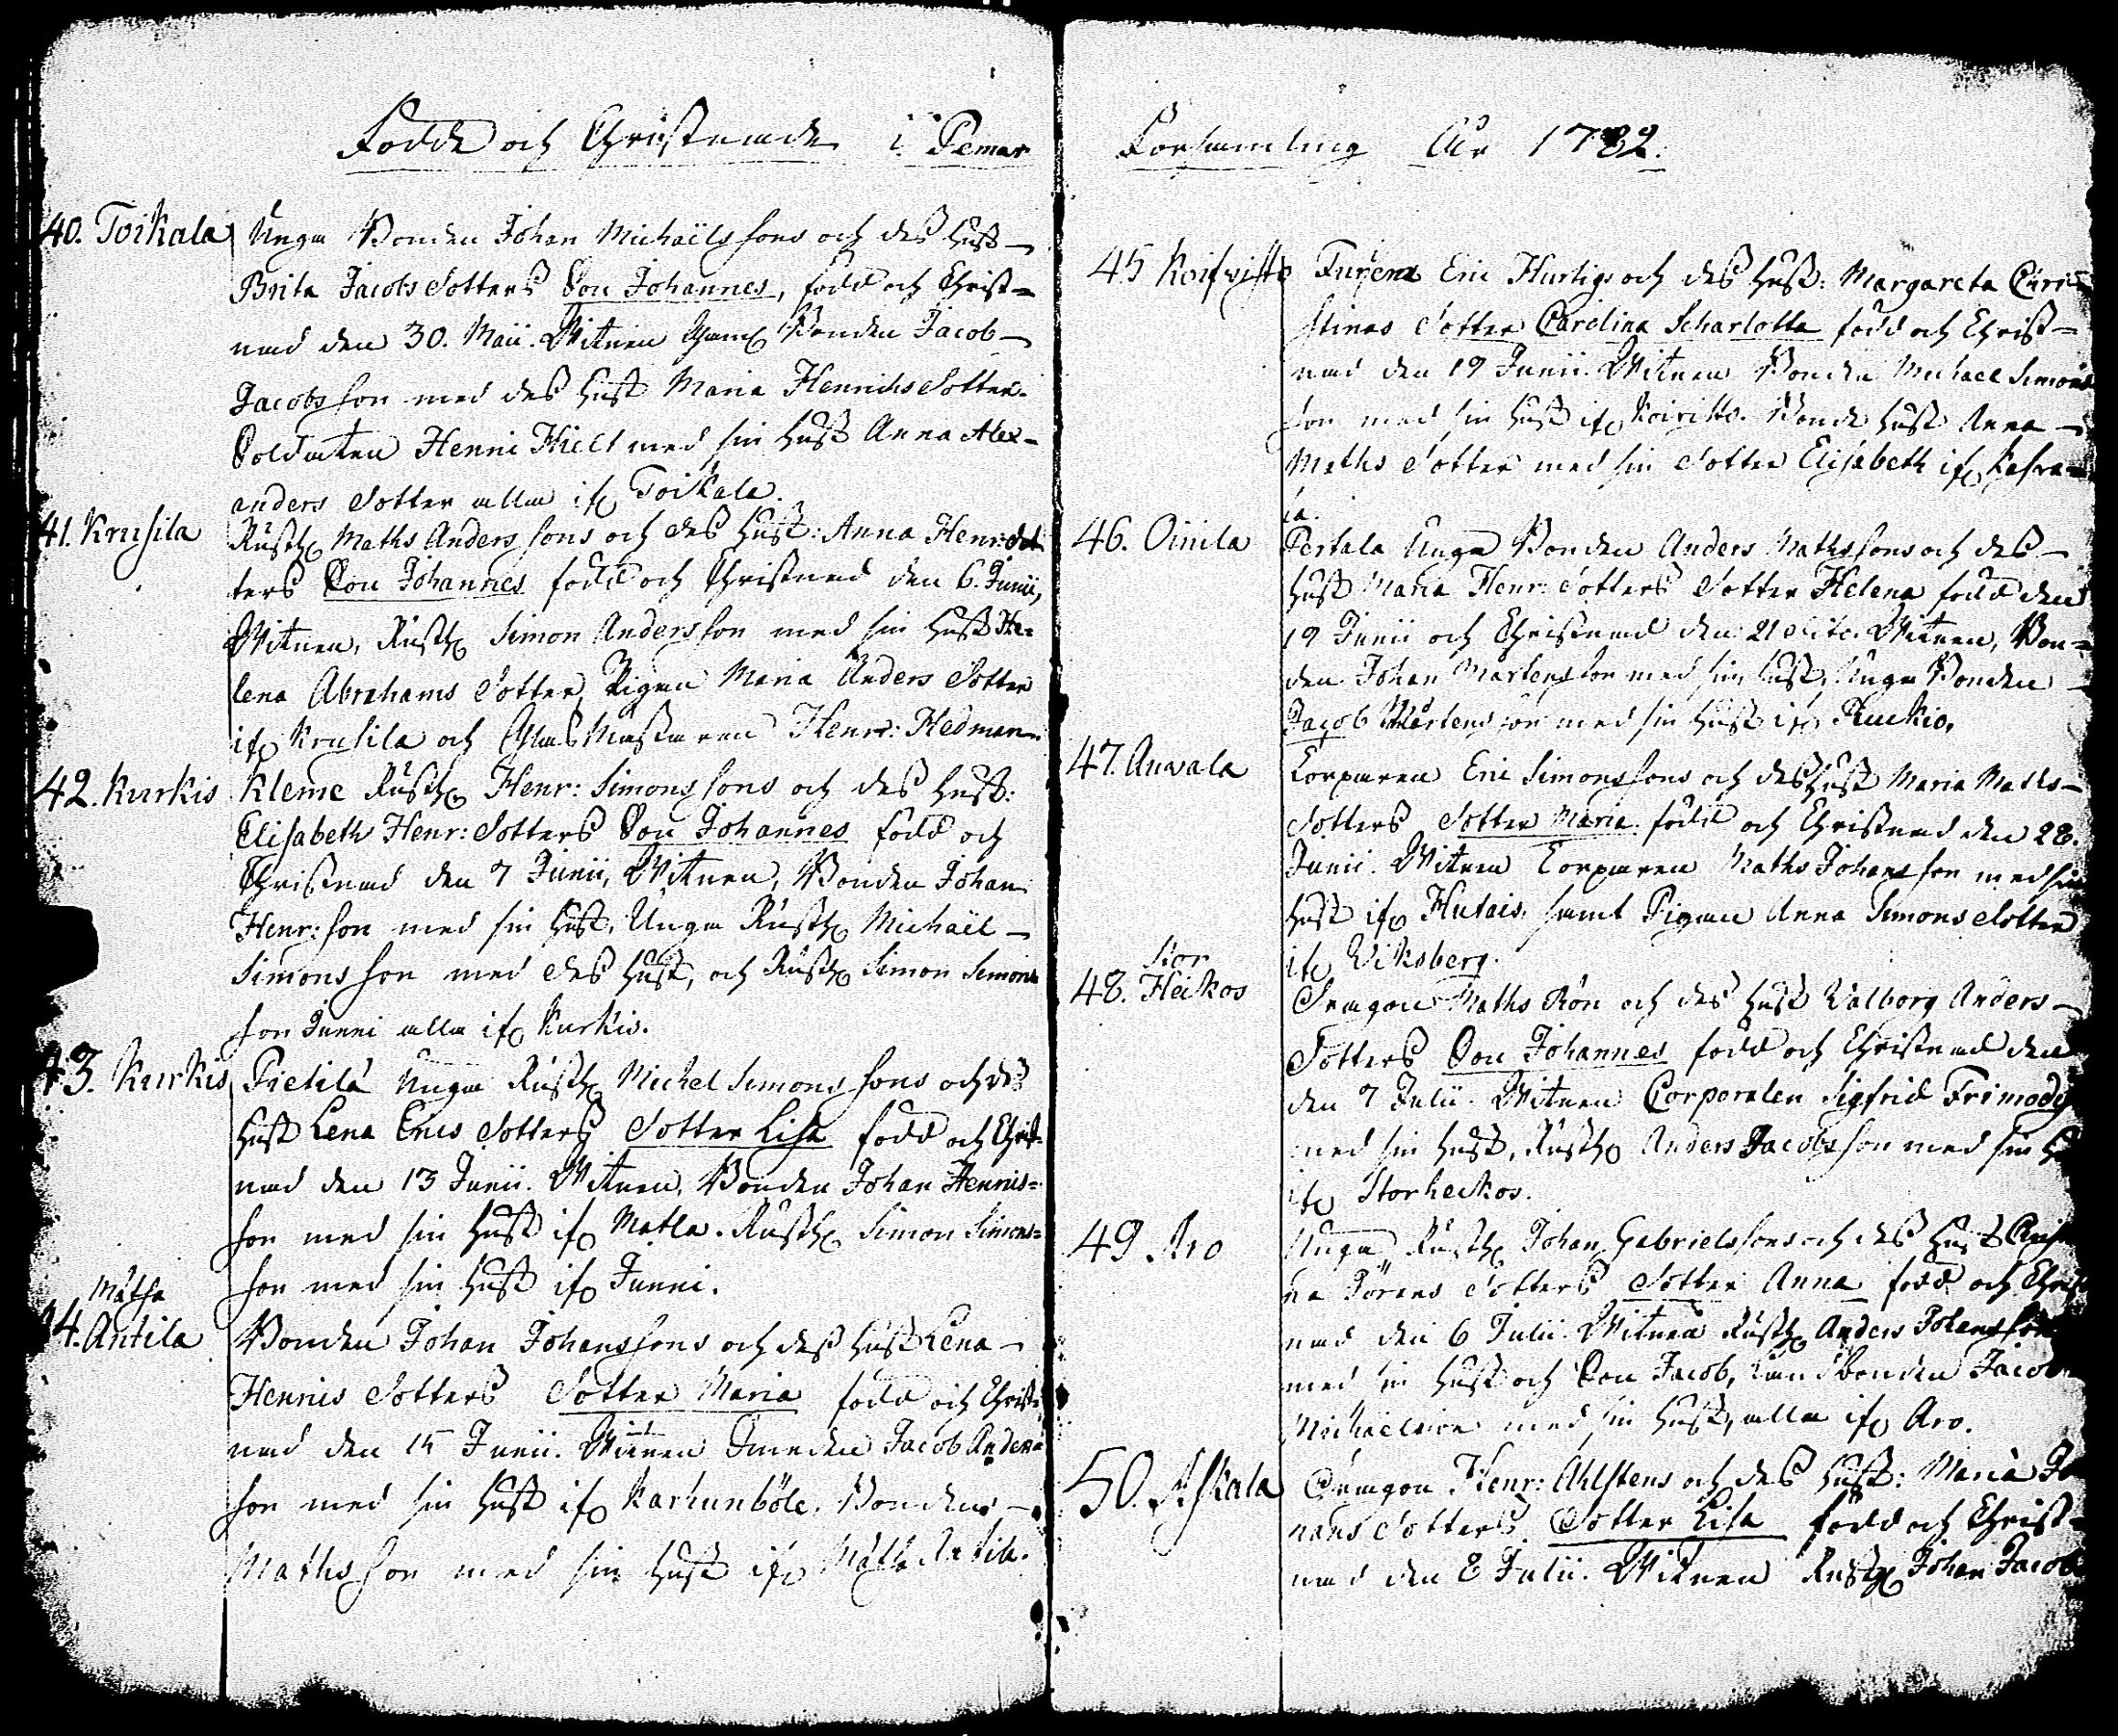 Födde och Christnade i Pemar
40. Toikala Unga Bonden Johan Michaëls sons och des Hust
Brita Jacobs dotters Son Johannes, född och Christ=
nad den 30. Maii. Witnen Gaml Bonden Jacob
Jacobs son med des Hust Maria Henrichs dotter.
Soldaten Henric Hielt med sin Hust Anna Alex=
anders dotter alla if Toikala.
41. Krusila Rusth Maths Anders sons och des Hust: Anna Henr: dot
ters Son Johannes född och Christnad den 6. Junii,
Witnen, Rusth Simon Anders son med sin Hust He=
lena Abrahams dotter, Pigan Maria Anders dotter
if Krusila och Glas Mästaren Henr: Hedman.
42. Kurkis Kleme Rusth Henr: Simons sons och des Hust:
Elisabeth Henr: dotters Son Johannes född och
Christnad den 7 Junii, Witnen, Bonden Johan
Henr: son med sin Hust, Unga Rusth Michaël
Simons son med des Hust, och Rusth Simon Simons
son Junni alla if Kurkis.
43. Kurkis Pietilä Unga Rusth Michel Simons sons och des
Hust Lena Erics dotters dotter Lisa född och Christ=
nad den 13 Junii. Witnen, Bonden Johan Henrics=
son med sin Hust if Matla. Rusth Simon Simons=
son med sin Hust if Junni.
Mätsä
44. Antila Bonden Johan Johans sons och dess Hust Lena
Henrics dotters dotter Maria född och Christ=
nad den 15 Junii. Witnen Smeden Jacob Anders
son med sin Hust if Karhunböle, Bonden
Maths son med sin Hust if Mätsä Antila.
Församling År 1782.
45 Koifvisto Furiens Eric Hurtigs och des Hust: Margareta Chri=
stinas dotter Carolina Scharlotta född och Christ=
nad den 19 Junii. Witnen Bonden Michael Simons
son med sin Hust if Koivisto. Bonde Hust Anna
Maths dotter med sin dotter Elisabeth if
la.
46. Oinila Pertala Unga Bonden Anders Maths sons och des
Hust Maria Henr: dotters dotter Helena född den
19 Junii och Christnad den 21 dito. Witnen, Bon=
den Johan Mårtens son med sin Hust, Unga Bonden
Jacob Mårtens son med sin Hust if Ruckio.
47. Auvala Torparen Eric Simons sons och des Hust Maria Maths
dotters dotter Maria född och Christnad den 28.
Junii. Witnen Torparen Maths Johans son med sin
Hust if Hutais, samt Pigan Anna Simons dotter
if Wiksberg.
Stor
48. Heikos Dragon Maths Rön och des Hust Walborg Anders
dotters Son Johannes född och Christnad den
den 7 Julii. Witnen Corporalen Sigfrid Frimodig
med sin Hust, Rusth Anders Jacobs son med sin H
if Storheikos.
49 Aro Unga Rusth Johan Gabriels sons och des Hust
na Jörans dotters dotter Anna född och Christ
nad den 6 Julii. Witnen Rusth Anders Johans son
med sin Hust och Son Jacob, Landbonden Jacob
Michaelson med sin Hust, alla if Aro.
50. Askala Dragon Henr: Ahlstens och des Hust: Maria Jo
hans dotters dotter Lisa född och Christ=
nad den 8 Julii. Witnen Rusth Johan Jacob